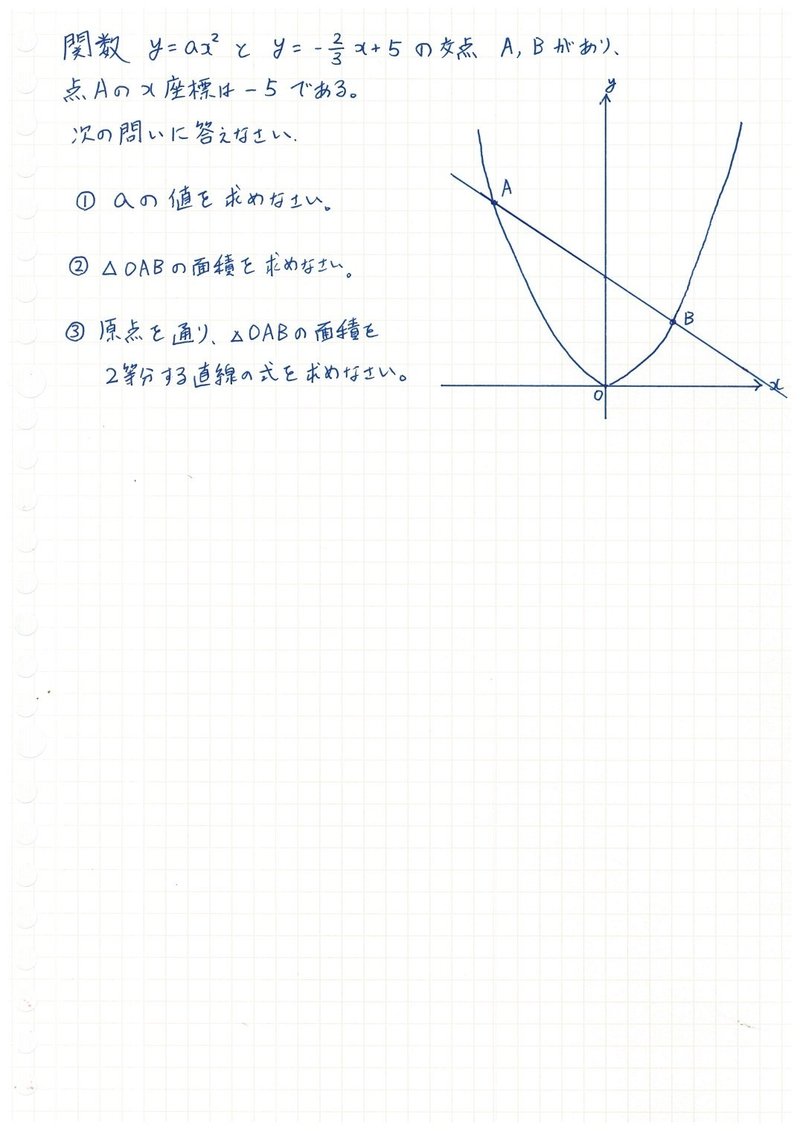 関数 y=ax² と y=-2/3x+5 の交点 A, B があり、
点Aの x 座標は -5 である。
次の問いに答えなさい.
① aの値を求めなさい。
② △OABの面積を求めなさい。
③ 原点を通り、△OABの面積を
2等分する直線の式を求めなさい。
y
A
B
O
x